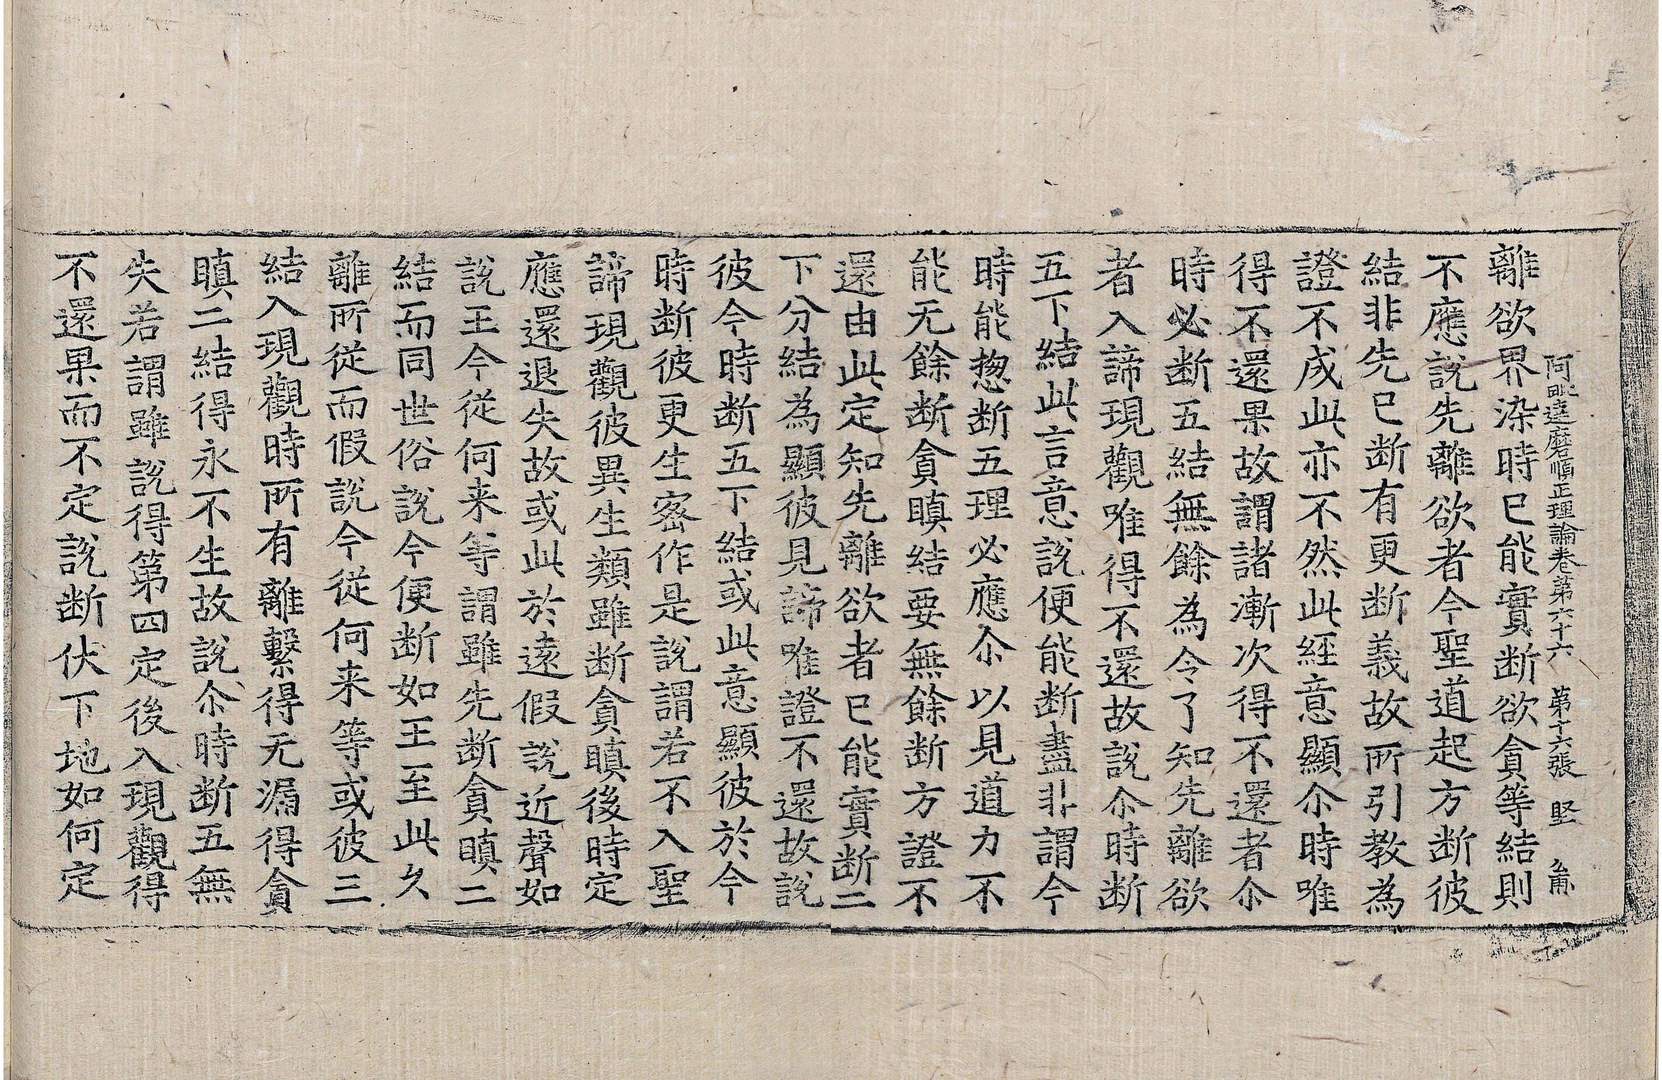 阿毗達磨順正理論卷第六十六 第十六張 堅
離欲界染時已能實斷欲貪等結則
不應說先離欲者今聖道起方断彼
結非先已断有更断義故所引教為
證不成此亦不然此經意顯尒時唯
得不還果故謂諸漸次得不還者尒
時必断五結無餘為令了知先離欲
者入諦現觀唯得不還故說尒時断
五下結此言意說便能断盡非謂今
時能揔断五理必應尒以見道力不
能无餘断貪瞋結要無餘断方證不
還由此定知先離欲者已能實断二
下分結為顯彼見諦唯證不還故說
彼今時断五下結或此意顯彼於今
時断彼更生密作是說謂若不入聖
諦現觀彼異生類雖断貪瞋後時定
應還退失故或此於遠假說近聲如
說王今從何来等謂雖先断貪瞋二
結而同世俗說今便断如王至此久
離所從而假說今從何来等或彼三
結入現觀時所有離繫得无漏得貪
瞋二結得永不生故說尒時断五無
失若謂雖說得第四定後入現觀得
不還果而不定說断伏下地如何定